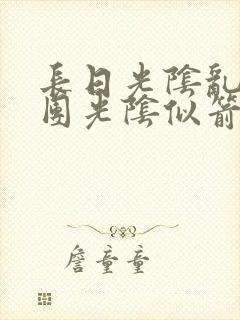 長日光陰亂
團光陰似箭
詹童童